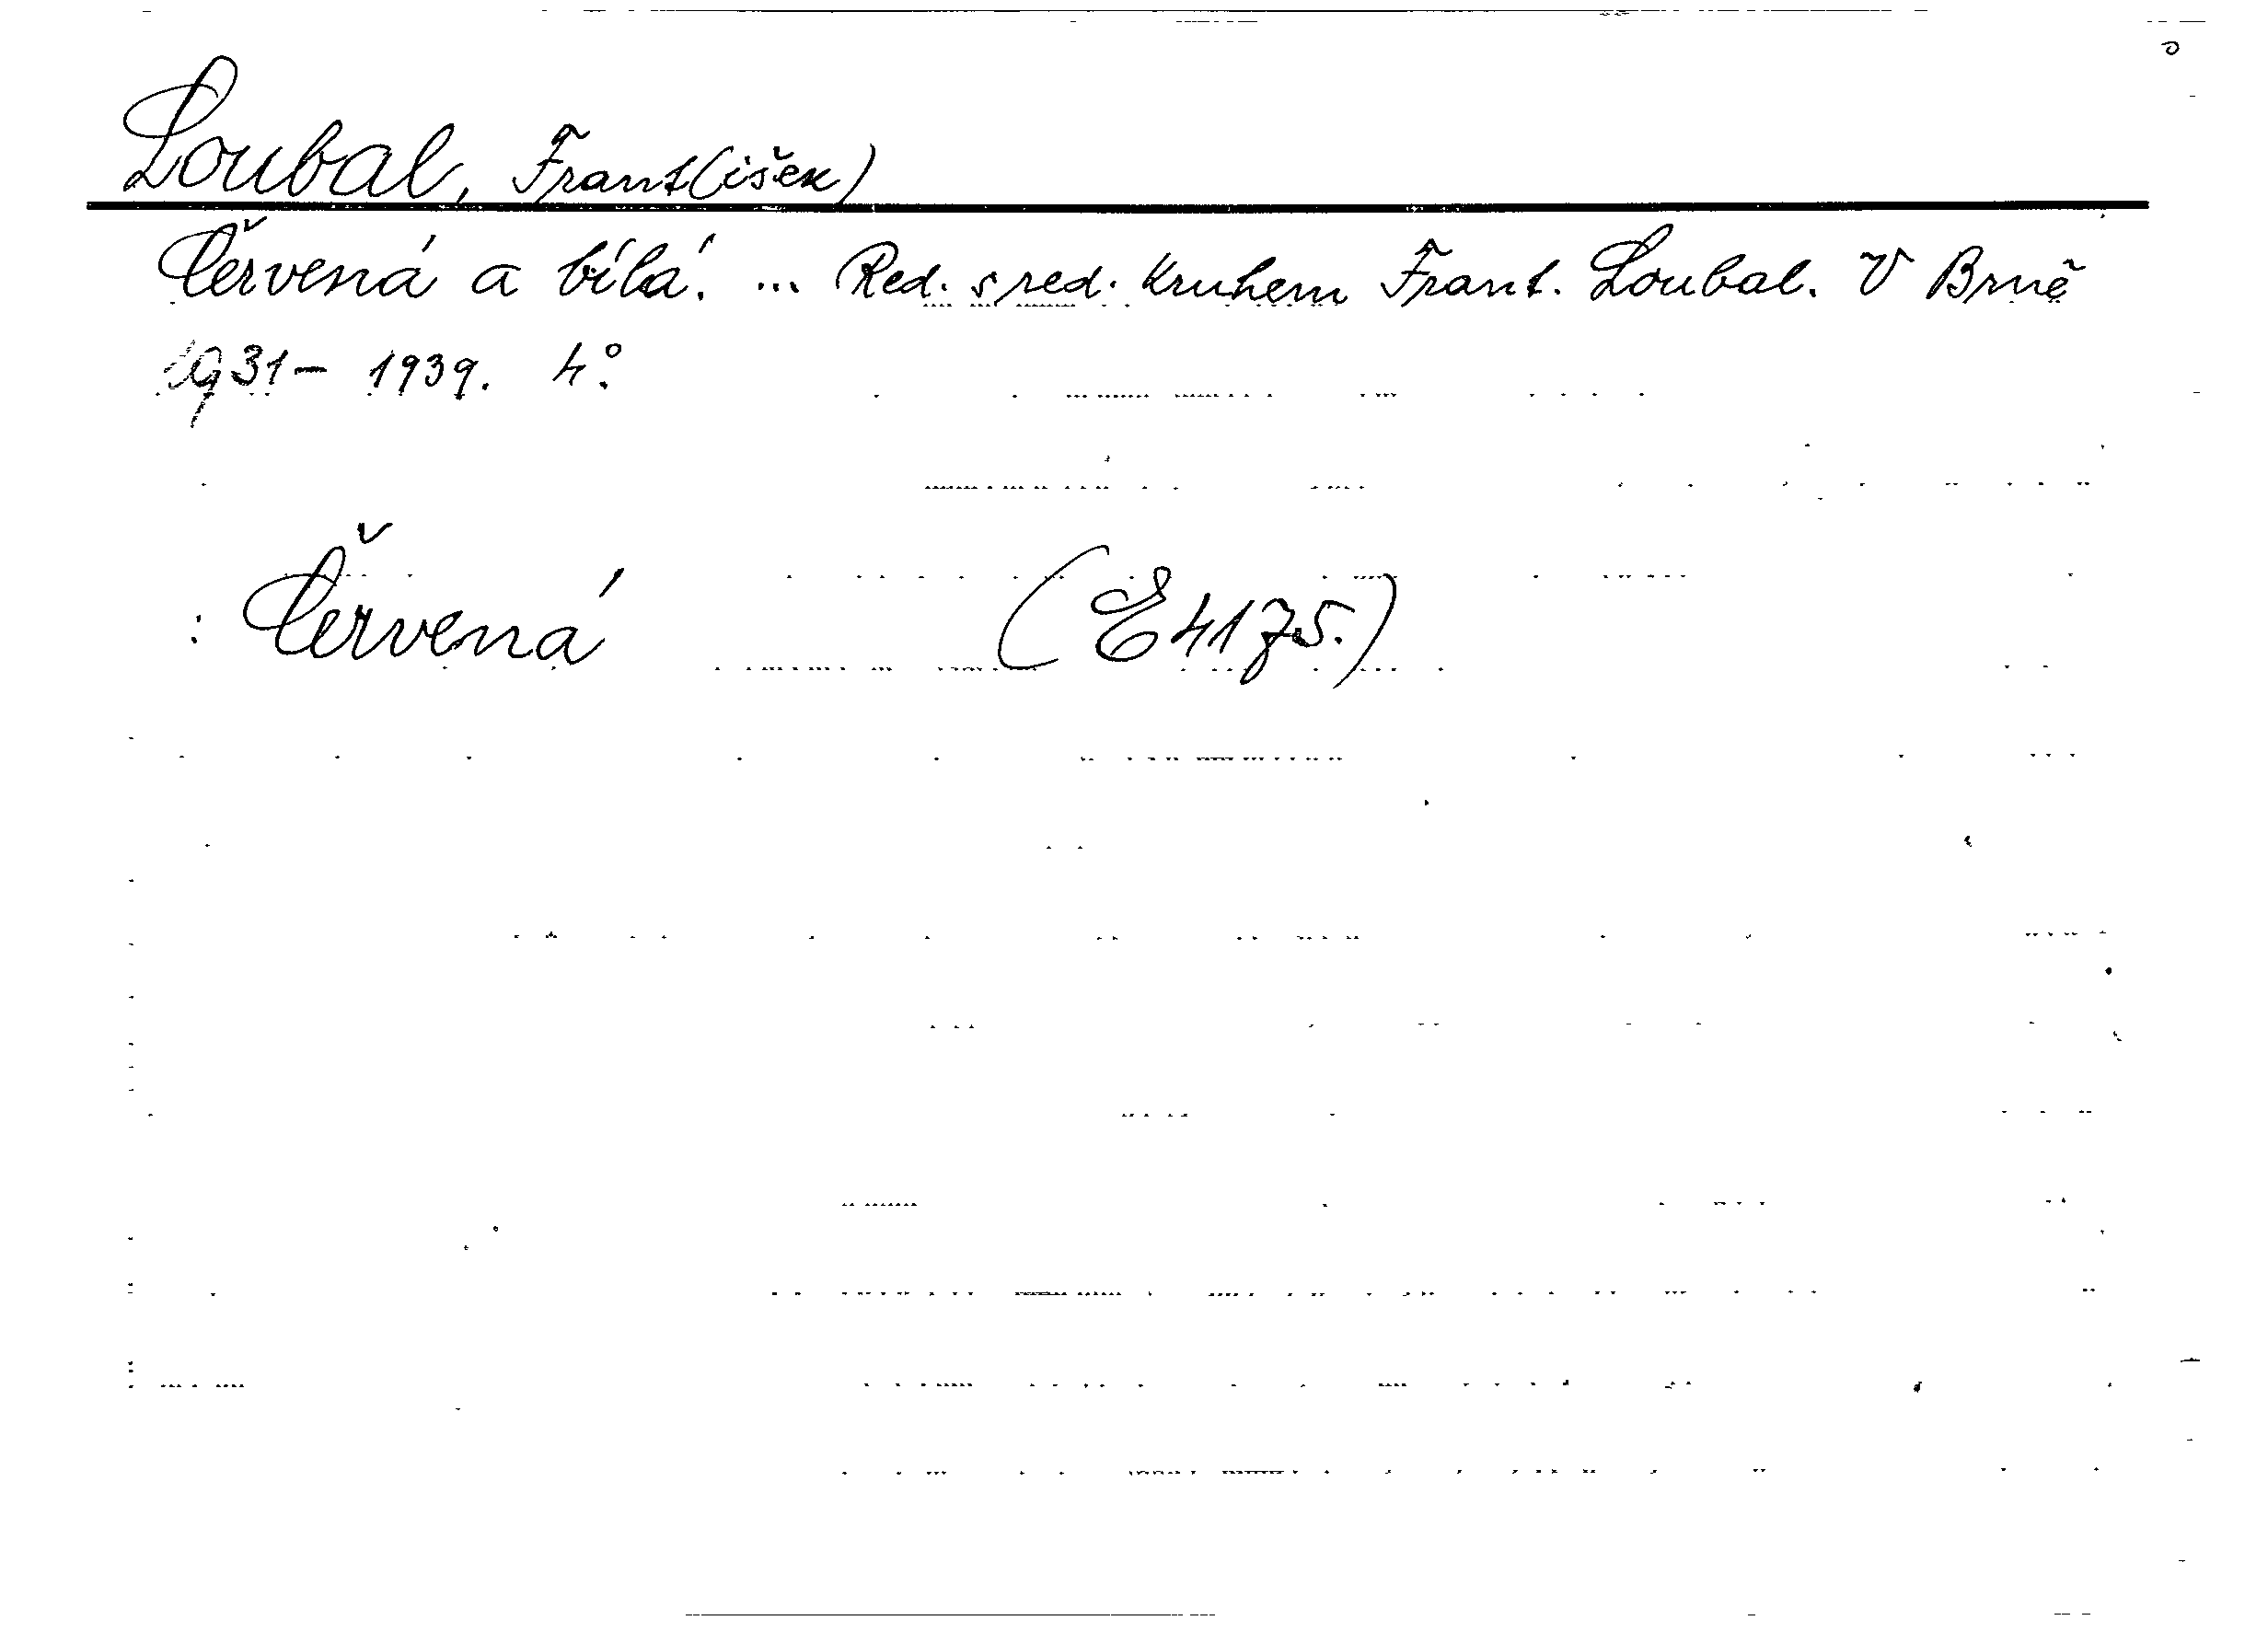 Loubal, Frant(išek)
Červená a bílá. ... Red. s red. kruhem Frant. Loubal. V Brně
1931- 1939. 4°.
: Červená (E 4175.)